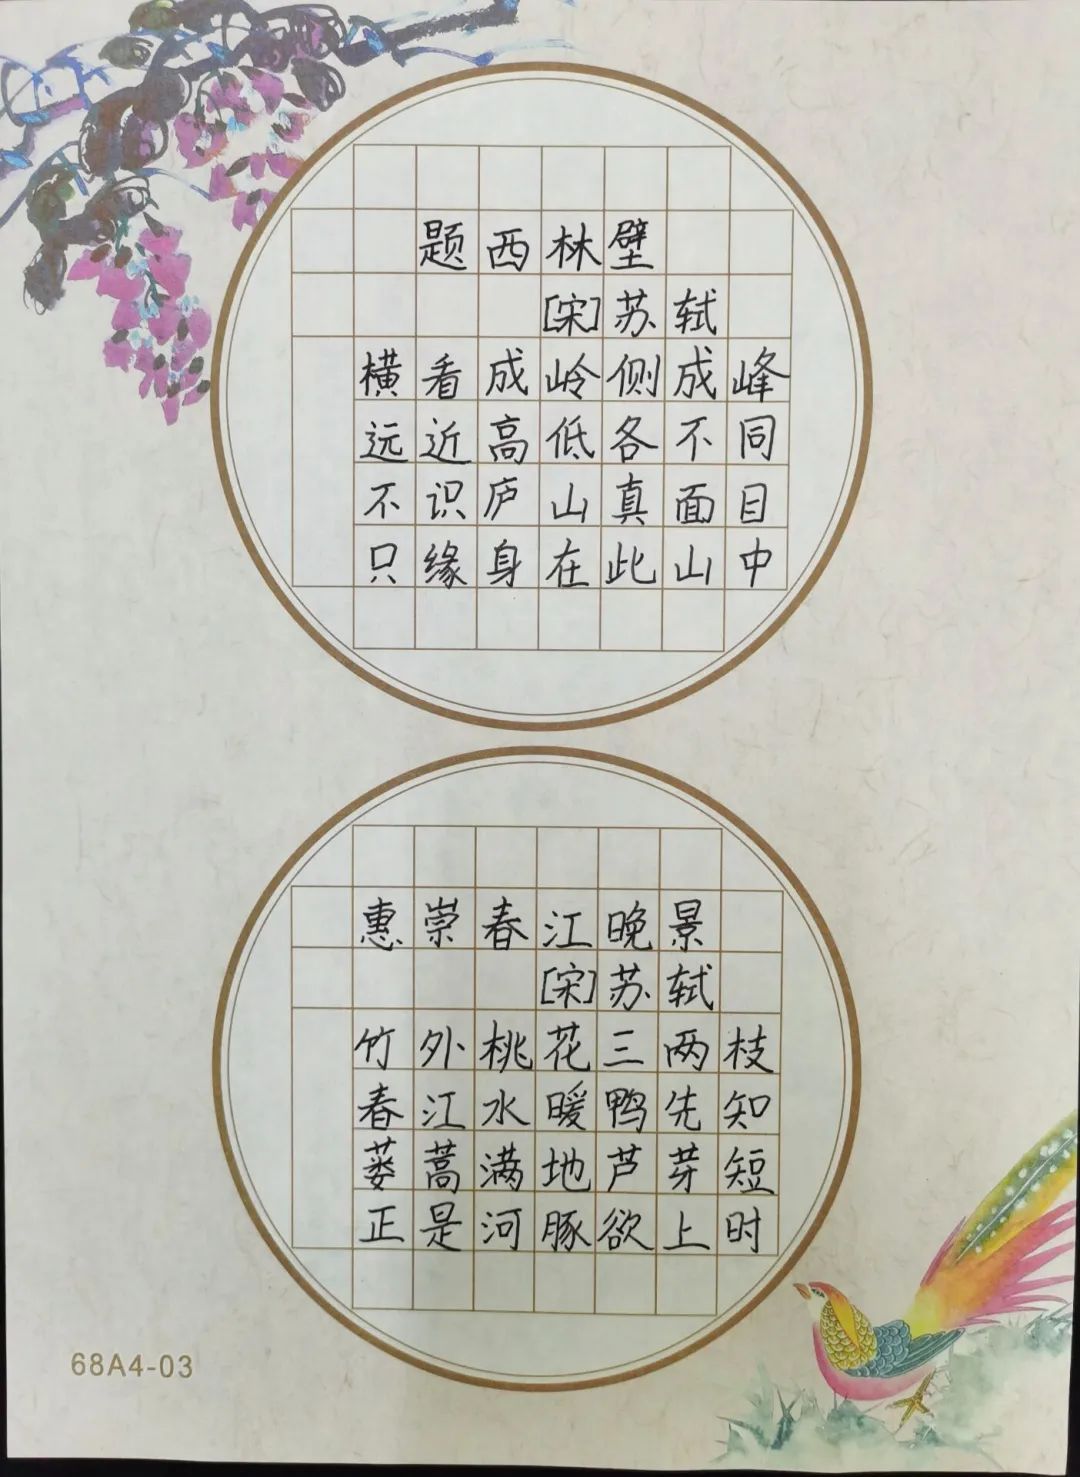 题西林壁
[宋]苏轼
横看成岭侧成峰
远近高低各不同
不识庐山真面目
只缘身在此山中
惠崇春江晚景
[宋]苏轼
竹外桃花三两枝
春江水暖鸭先知
蒌蒿满地芦芽短
正是河豚欲上时
68A4-03